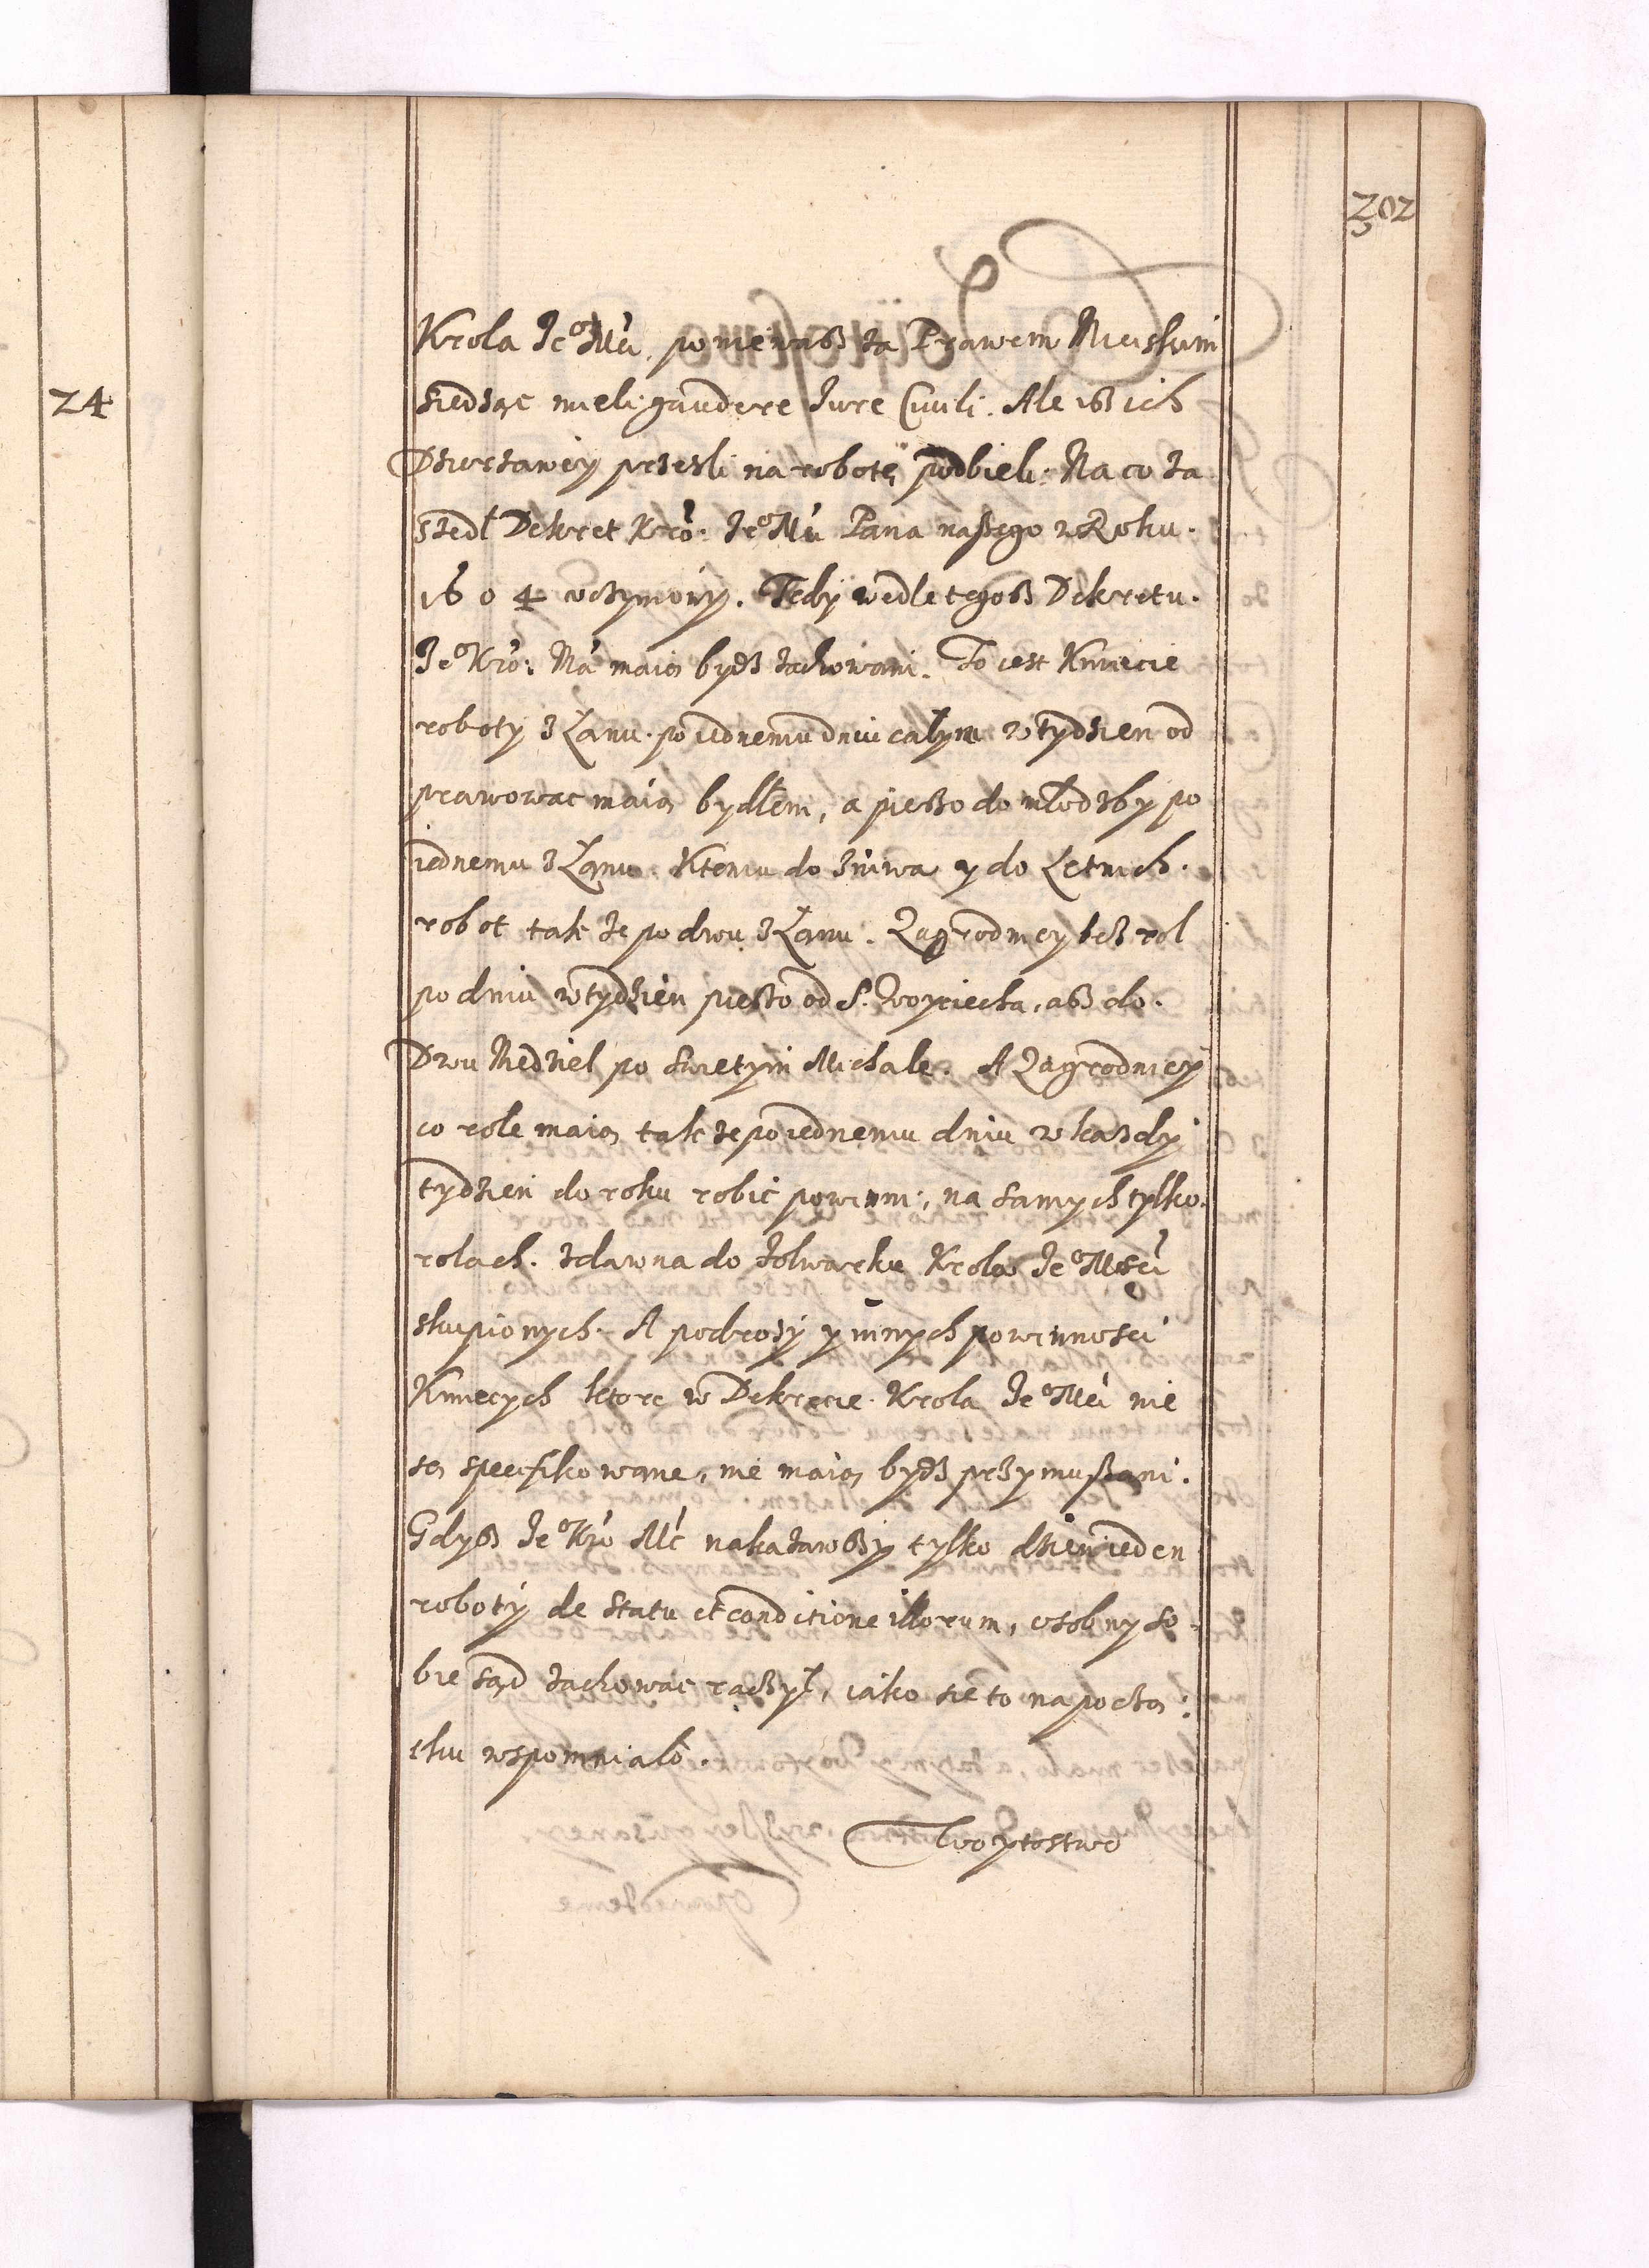 202
24
Krola Je⁰Mci. poniewasz za Prawem Mieiskim
siedząc mieli gaudere Jure Ciuili. Ale isz ich
Dzierzawcy przeszli na robotę podbieli. Na co za
szedł Dekret Kro: Je⁰Mci Pana naszego w Roku.
1604 uczyniony. Tedy wedle tegosz Dekretu.
Je⁰ Kro: Mci maią bydz zachowani. To iest Kmiecie
roboty z Łanu. po iednemu dniu całym w tydzien od
prawowac maią bydłem, a pieszo do młodzby po
iednemu z Łanu. K temu do zniwa y do Letnich.
robot takze po dwu z Łanu. Zagrodnicy bez rol
po dniu w tydzien pieszo od S. Woyciecha, asz do.
Dwu Niedziel po Swietym Michale. A Zagrodnicy
co role maią takze po iednemu dniu w kazdy
tydzien do roku robic powinni, na samych tylko.
rolach. zdawna do folwarku Krola Je⁰Msci
skupionych. A podrozy y innych powinnosci
Kmiecych ktore w Dekrecie Krola Je⁰Mci nie
są specifikowane, nie maią bydz przymuszani.
Gdysz Je⁰ Kro Mc nakazawszy tylko dzien ieden
roboty de statu et conditione illorum, osobny so-
bie sąd zachowac raczył, iako sie to na począ:
tku wspomniało.
Woytostwo